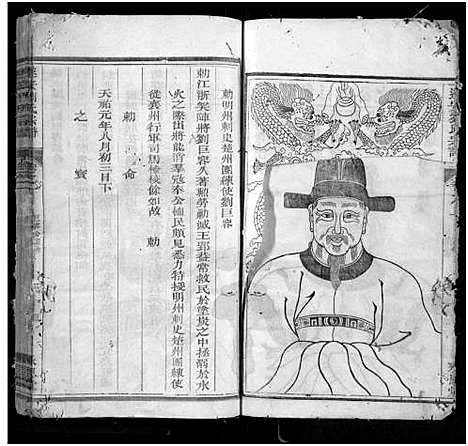 勅明州刺史楚州團練使劉巨容
勅江浙突陣將劉巨容久著勲勞勦滅王郢葢常救民於塗炭之中拯溺於水
火之際出將能消羣冦奉公恤民頗見悉力特授明州刺史楚州團練使
從襄州行軍司馬檢校餘如故　勅
勅　命
天祐元年八月初三日下
之　寳